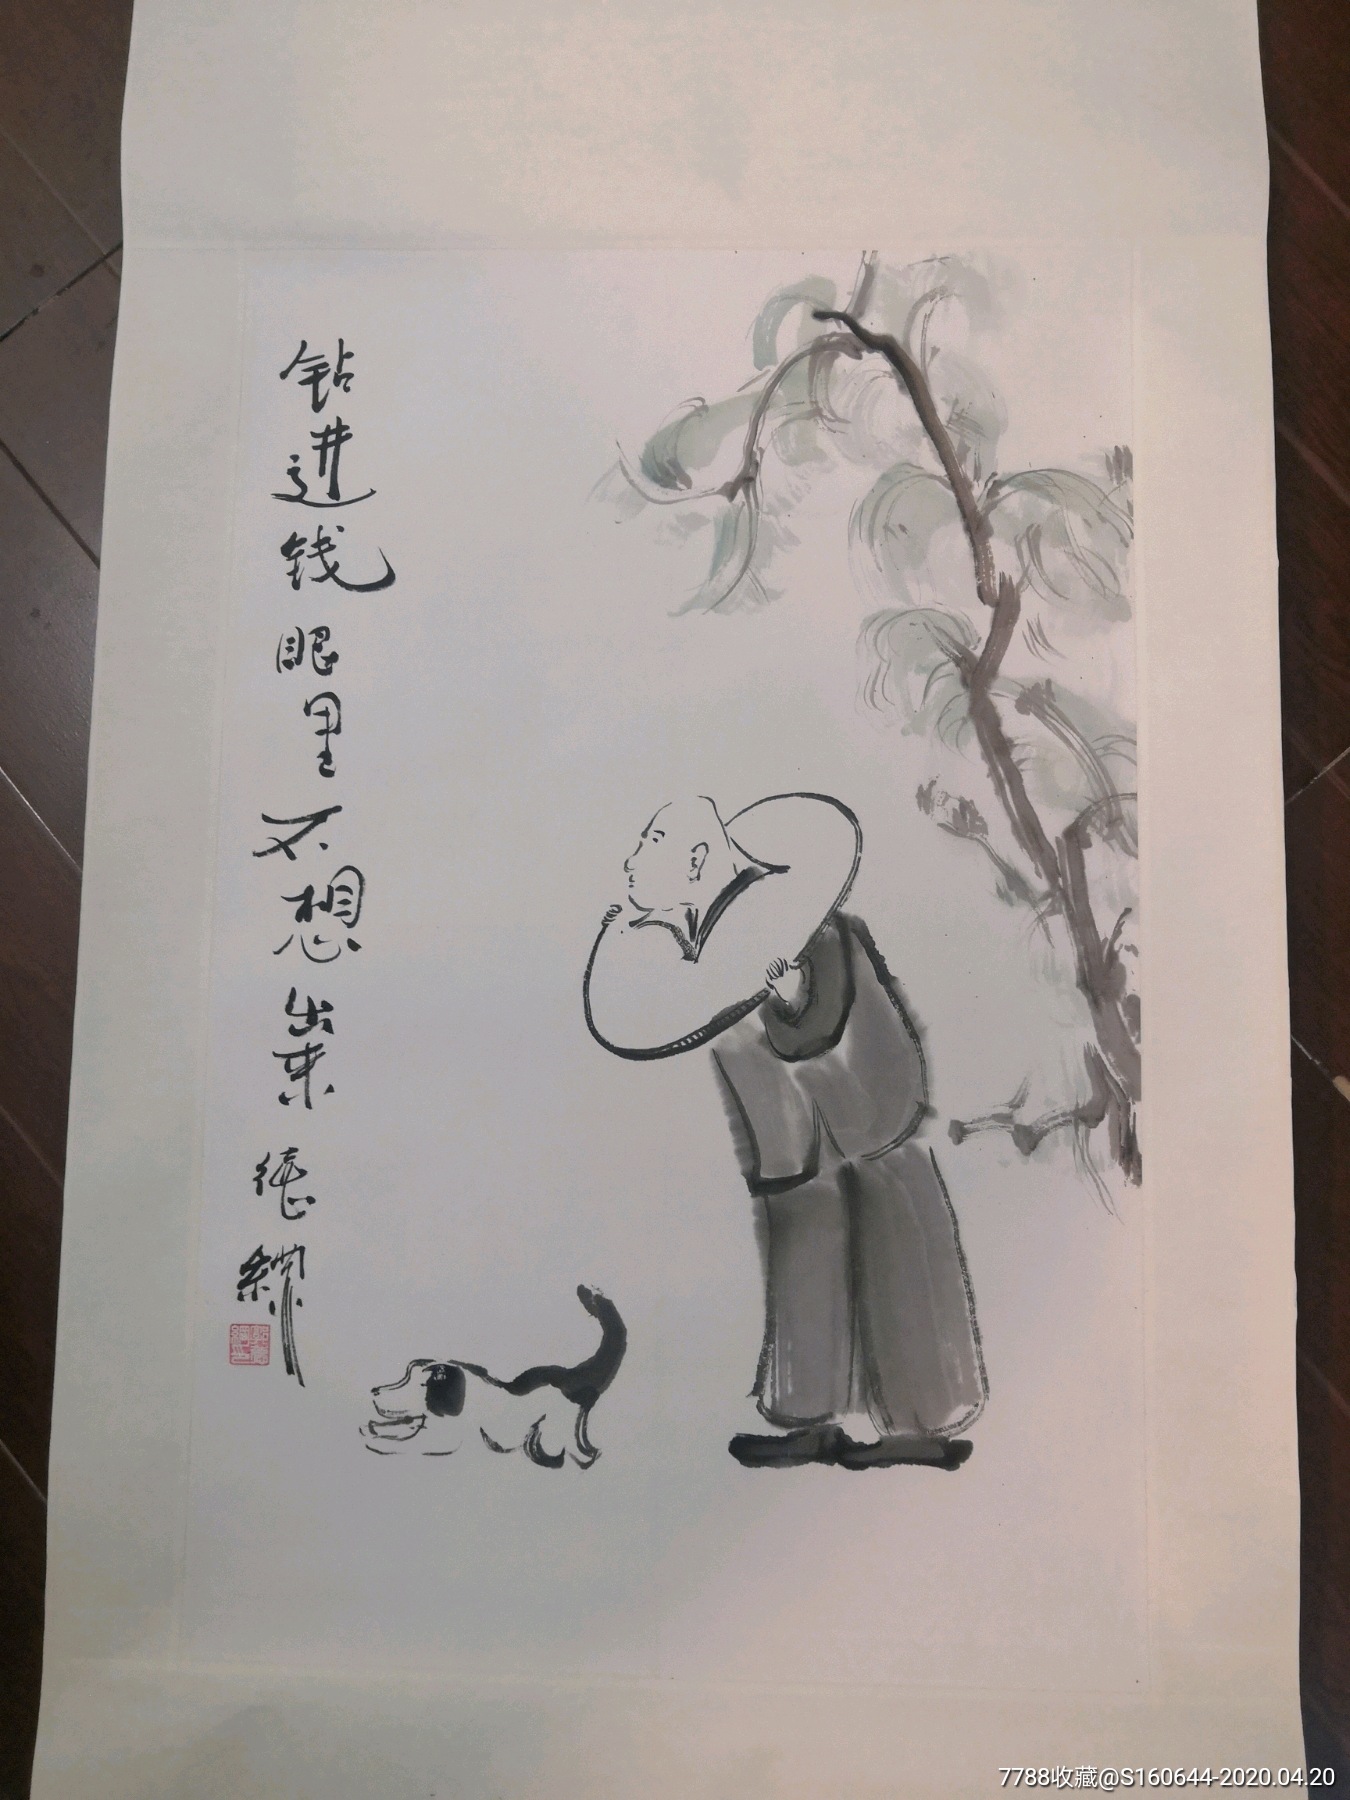 钻进钱眼里不想出来 德纲
7788收藏@S160644-2020.04.20